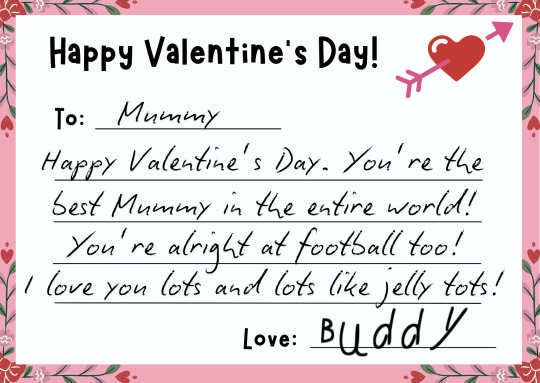 Happy Valentine's Day!
To: Mummy
Happy Valentine's Day. You're the
best Mummy in the entire world!
You're alright at football too!
I love you lots and lots like jelly tots!
Love: Buddy